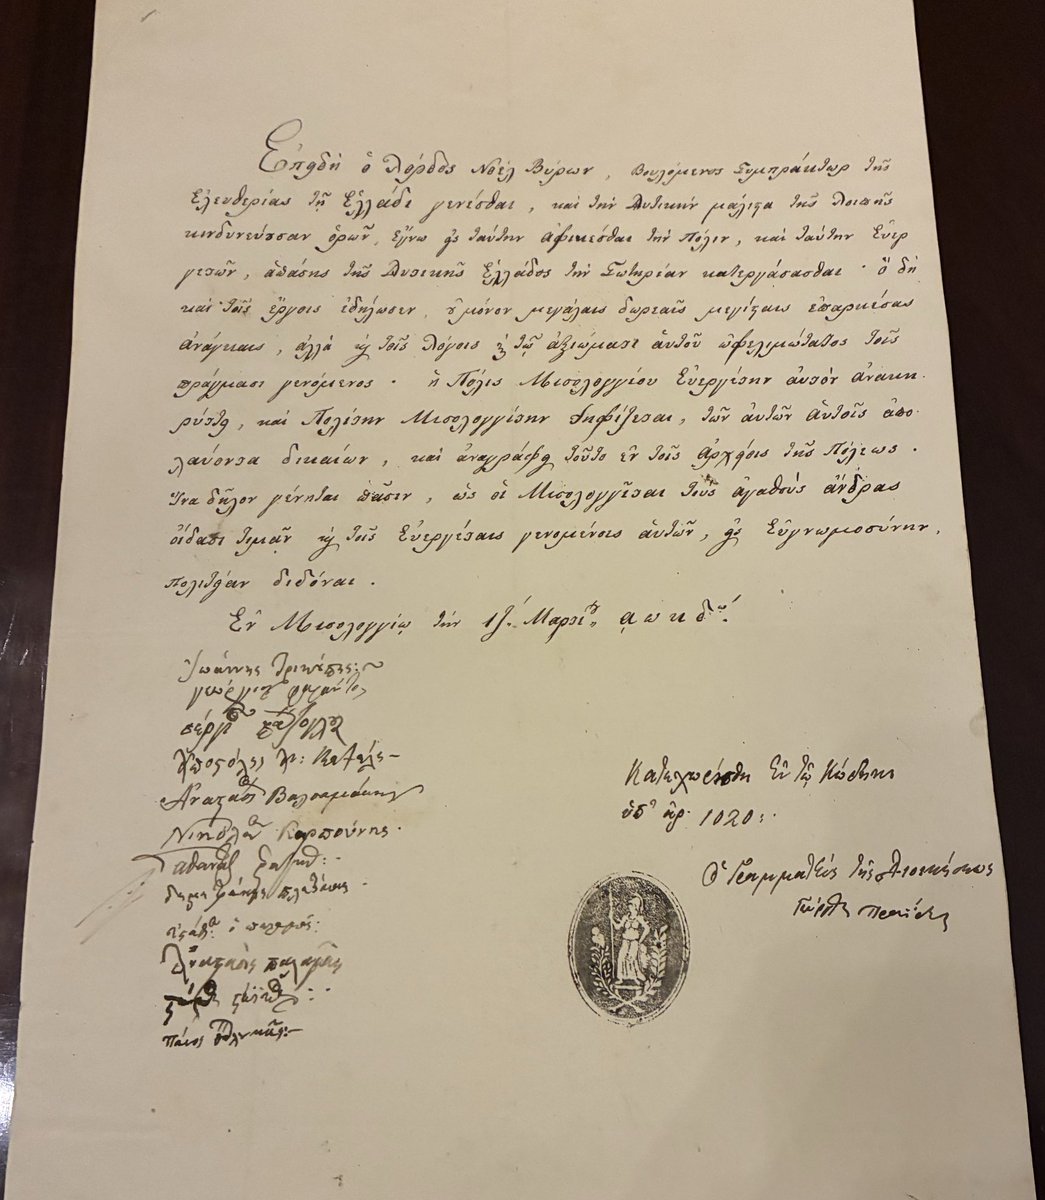 Ἐπειδὴ ὁ Λόρδος Νοὲλ Βύρων, Βουλόμενος Συμπράκτωρ τῆς
Ἐλευθερίας τῇ Ἑλλάδι γενέσθαι, καὶ τὴν Δυτικὴν μάλιστα τῆς Λοιπῆς
κινδυνεύουσαν ὁρῶν, ἔγνω εἰς ταύτην ἀφικέσθαι τὴν Πόλιν, καὶ ταύτην Εὐερ
γετῶν, ἁπάσης τῆς Δυτικῆς Ἑλλάδος τὴν Σωτηρίαν κατεργάσασθαι· ὃ δὴ
καὶ τοῖς ἔργοις ἐδήλωσεν, οὐ μόνον μεγάλαις δωρεαῖς μεγίσταις ἐπαρκέσας
ἀνάγκαις, ἀλλὰ καὶ τοῖς Λόγοις καὶ τῷ ἀξιώματι αὑτοῦ ὠφελιμώτατος τοῖς
πράγμασι γενόμενος· ἡ Πόλις Μεσολογγίου Εὐεργέτην αὐτὸν ἀνακη-
ρύττει, καὶ Πολίτην Μεσολογγίτην Ψηφίζεται, τῶν αὐτῶν αὐτοῖς ἀπο-
λαύοντα δικαίων, καὶ ἀναγράφει τοῦτο ἐν τοῖς Ἀρχείοις τῆς Πόλεως.
Ἵνα δῆλον γένηται πᾶσιν, ὡς οἱ Μεσολογγῖται τοὺς ἀγαθοὺς ἄνδρας
οἴδασι τιμᾶν καὶ τοῖς Εὐεργέταις γενομένοις αὑτῶν, εἰς Εὐγνωμοσύνην,
πολιτείαν διδόναι.
Ἐν Μεσολογγίῳ τὴν Μαρτίου αωκδου
Ἰωάννης Τρικούπης
γεώργιος
Ἀπόστολος
Ἀναστάσιος Βαλσαμάκης
Νικόλαος Καρπούνης
ἀθανάσιος
ὁ
παλαμᾶς
πάνος
Κατεχωρίσθη Ἐν τῷ Κώδικι
ὑπ' ἀρ. 1020:
Ὁ Γραμματεὺς τῆς Διοικήσεως
Γεώργιος Πραΐδης